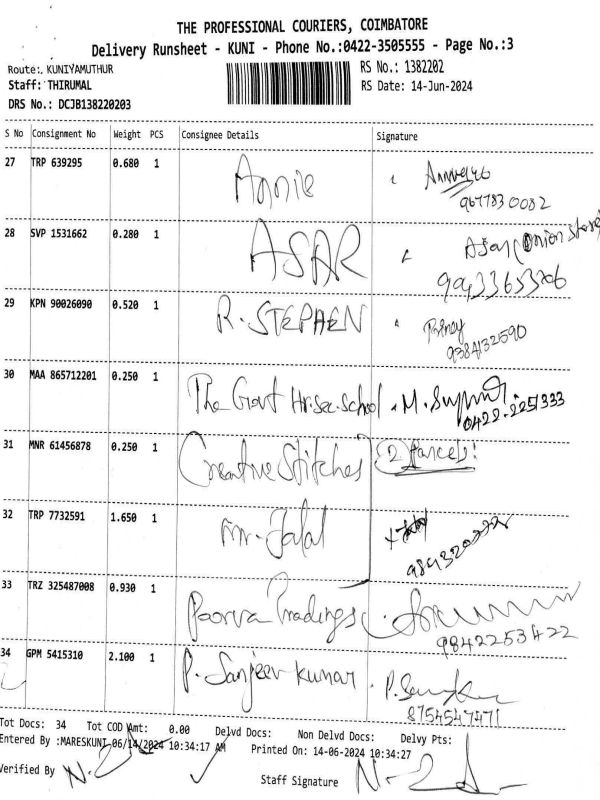 THE PROFESSIONAL COURIERS, COIMBATORE
Delivery Runsheet - KUNI - Phone No.:0422-3505555 - Page No.:3
Route:. KUNIYAMUTHUR RS No.: 1382202
Staff: THIRUMAL RS Date: 14-Jun-2024
DRS No.: DCJB138220203
S No Consignment No Weight PCS Consignee Details Signature
27 TRP 639295 0.680 1 Annie
9677830082
28 SVP 1531662 0.280 1 ASAR Asar (Onion store)
9943365306
29 KPN 90026090 0.520 1 R. STEPHEN
9384132590
30 MAA 865712201 0.250 1 The Govt Hr.sec.school M.
0422-2251333
31 MNR 61456878 0.250 1 Creative Stitches 2 Parcels!
32 TRP 7732591 1.650 1 Mr. Jalal
33 TRZ 325487008 0.930 1 Poorva Tradings
9842253422
34 GPM 5415310 2.100 1 P. Sanjeev Kumar
8754547471
Tot Docs: 34 Tot COD Amt: 0.00 Delvd Docs: Non Delvd Docs: Delvy Pts:
Entered By :MARESKUNI-06/14/2024 10:34:17 AM Printed On: 14-06-2024 10:34:27
Verified By Staff Signature